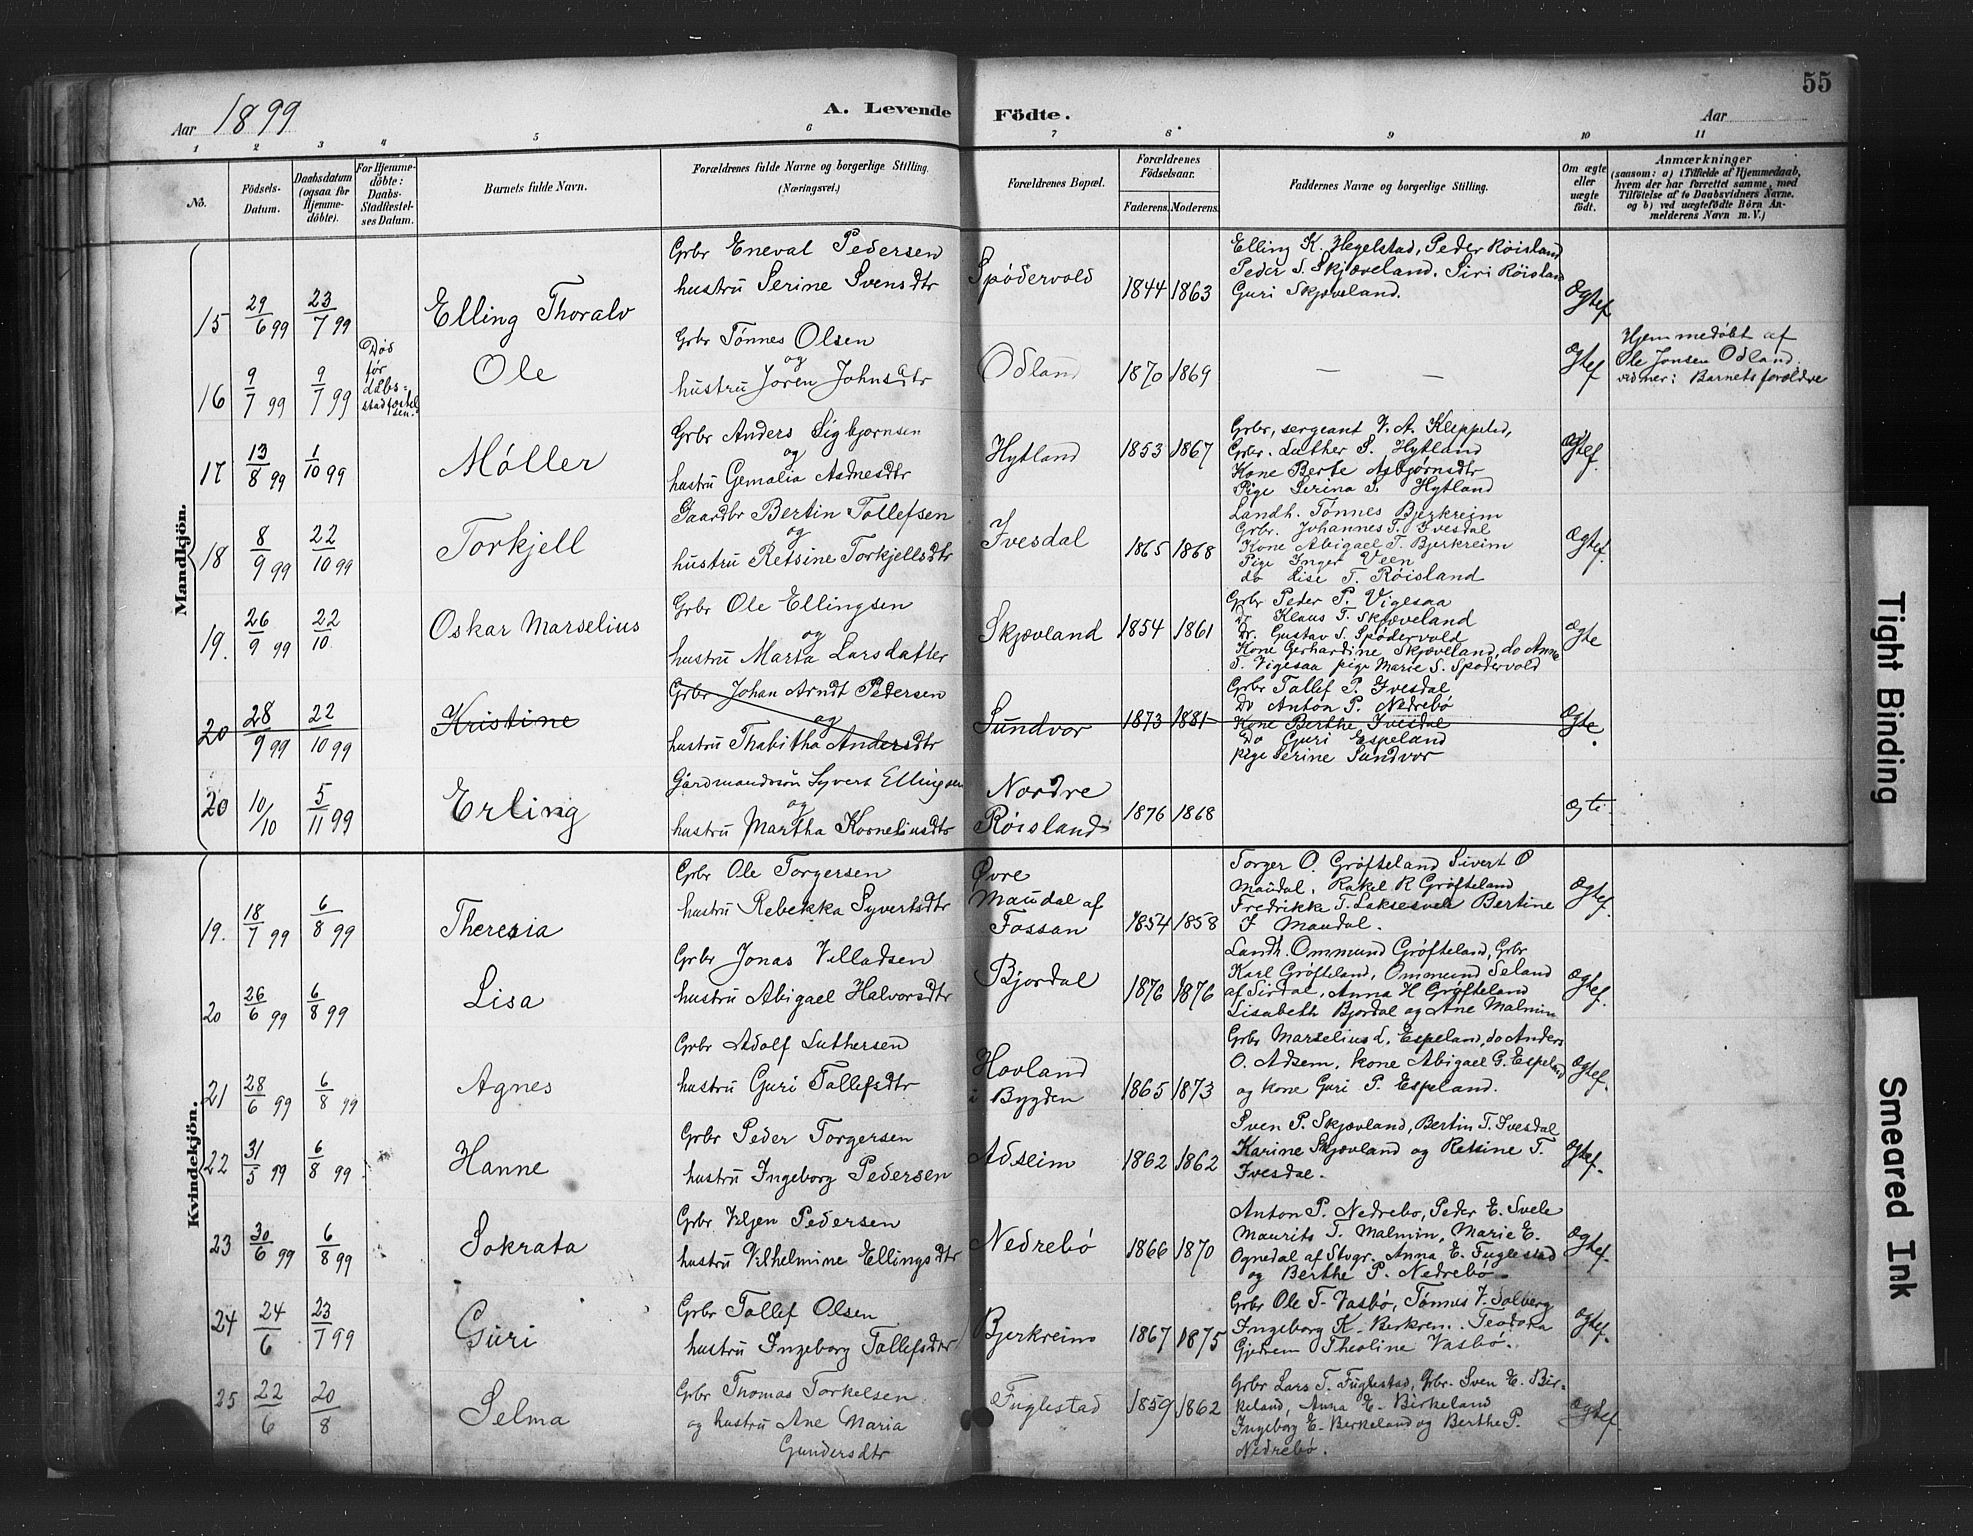 55
Aar 1899
A. Levende Födte.
Aar
1 2 3 4 5 6 7 8 9 10 11
No.
Födsels-Datum.
Daabsdatum (ogsaa for Hjemme-döbte).
For Hjemme-döbte: Daabs-Stadfæstelses Datum.
Barnets fulde Navn.
Forældrenes fulde Navne og borgerlige Stilling. (Næringsvei.)
Forældrenes Bopæl.
Forældrenes Födselsaar.
Faderens. Moderens.
Faddernes Navne og borgerlige Stilling.
Om ægte eller uægte födt.
Anmærkninger
(saasom: a) i Tilfælde af Hjemmedaab, hvem der har forrettet samme, med Tilföielse af to Daabsvidners Navne. og b) ved uægtefödte Börn Anmelderens Navn m. V.)
Mandkjön.
15 29/6 99 23/7 99 Elling Thoralv
Grbr Eneval Pedersen
hustru Serine Svensdtr
Spødervold 1844 1863
Elling K. Hegelstad, Peder Røisland
Peder S. Skjæveland. Siri Røisland
Guri Skjæveland.
Ægtef
16 9/7 99 9/7 99
Død
før
daabs-
stadfæstel
sen.
Ole
Grbr Tønnes Olsen
og
hustru Joren Johnsdtr
Odland 1870 1869 — —
Ægtef
Hjemmedøbt af
Ole Jonsen Odland.
vidner: Barnets forældre
17 13/8 99 1/10 99 Møller
Grbr Anders Sigbjørnsen
og
hustru Gemalia Asdnesdtr
Hytland 1853 1867
Grbr, sergeant V. A. Kleppelid,
Grbr. Luther S. Hytland
Kone Berte Asbjørnsdtr
Pige Serina S. Hytland
Ægtef.
18 8/9 99 22/10 99 Torkjell
Gaardbr Bertin Tollefsen
og
hustru Retsine Torkjellsdtr
Ivesdal 1865 1868
Landh. Tønnes Bjerkreim
Grbr. Johannes T. Ivesdal
Kone Abigael T. Bjerkreim
Pige Inger Veen
do Lise T. Røisland
Ægtef.
19. 26/9 99 22/10 Oskar Marselius
Grbr Ole Ellingsen
og
hustru Marta Larsdatter
Skjævland 1854 1861
Grbr Peder P. Vigesaa
Dr Klaus T. Skjæveland
Dr. Gustav S. Spødervold
Kone Gerhardine Skjæveland, do Anne
T. Vigesaa pige Marie S. Spødervold
Ægte
20 28/9 99 22/10 99 Kristine
Grbr Johan Arndt Pedersen
og
hustru Thabitha Andersdtr
Sundvor 1873 1881
Grbr Tallef P. Ivesdal
Do Anton P. Nedrebö
Kone Berthe Ivesdal
Do Guri Espeland
pige Serine Sundvor
Ægte
20 10/10 5/11 99 Erling
Gårdmandssøn Syvert Ellingsen
og
hustru Martha Korneliusdtr
Nordre
Røisland 1876 1868
Kvindekjön.
19. 18/7 99 6/8 99 Theresia
Grbr Ole Torgersen
hustru Rebekka Syvertsdtr
Øvre
Maudal af
Fossan 1854 1858
Torger O. Grøfteland Sivert O
Maudal, Rakel R Grøfteland
Fredrikke T. Laksesvele Bertine
I Maudal.
Ægtef.
20 26/6 99 6/8 99 Lisa
Grbr Jonas Villadsen
hustru Abigael Halvorsdtr
Bjordal 1876 1876
Landh. Ommund Grøfteland, Grbr
Karl Grøfteland, Ommund Seland
af Sirdal, Anna H Grøfteland
Lisabeth Bjordal og Ane Malmin
Ægtef.
21 28/6 99 6/8 99 Agnes
Grbr Adolf Luthersen
hustru Guri Tallefsdtr
Hovland
i Bygden 1865 1873
Grbr Marselius L. Espeland, do Anders
O. Adsem, kone Abigael G. Espeland
og kone Guri P. Espeland.
Ægtef.
22 31/5 99 6/8 99 Hanne
Grbr Peder Torgersen
hustru Ingeborg Pedersen
Adseim 1862 1862
Sven P. Skjævland, Bertin T. Ivesdal
Karine Skjævland og Retsine T.
Ivesdal.
Ægtef.
23 30/6 99 6/8 99 Sokrata
Grbr Viljen Pedersen
hustru Vilhelmine Ellingsdtr
Nedrebö 1866 1870
Anton P. Nedrebo, Peder E. Svele
Maurits T. Malmin, Marie E.
Ognedal af Stvgr. Anna E. Fuglestad
og Berthe P. Nedrebö.
Ægtef.
24 24/6 23/7 99 Guri
Grbr Tallef Olsen
hustru Ingeborg Tallefsdtr
Bjerkreim 1867 1875
Grbr Ole T. Vasbö, Tønnes V. Solberg
Ingeborg K. Berkrem. Teodora
Gjedrem Theoline Vasbö.
Ægtef.
25 22/6 20/8 Selma
Grbr Thomas Torkelsen
og hustru Ane Maria
Gundersdtr
Fuglestad 1859 1862
Grbr Lars T. Fuglestad, Grbr. Sven E. Bir-
keland, Anna E. Birkeland
Ingeborg E. Berkeland og Berthe P.
Nedrebö.
Ægtef.
Tight Binding
Smeared Ink